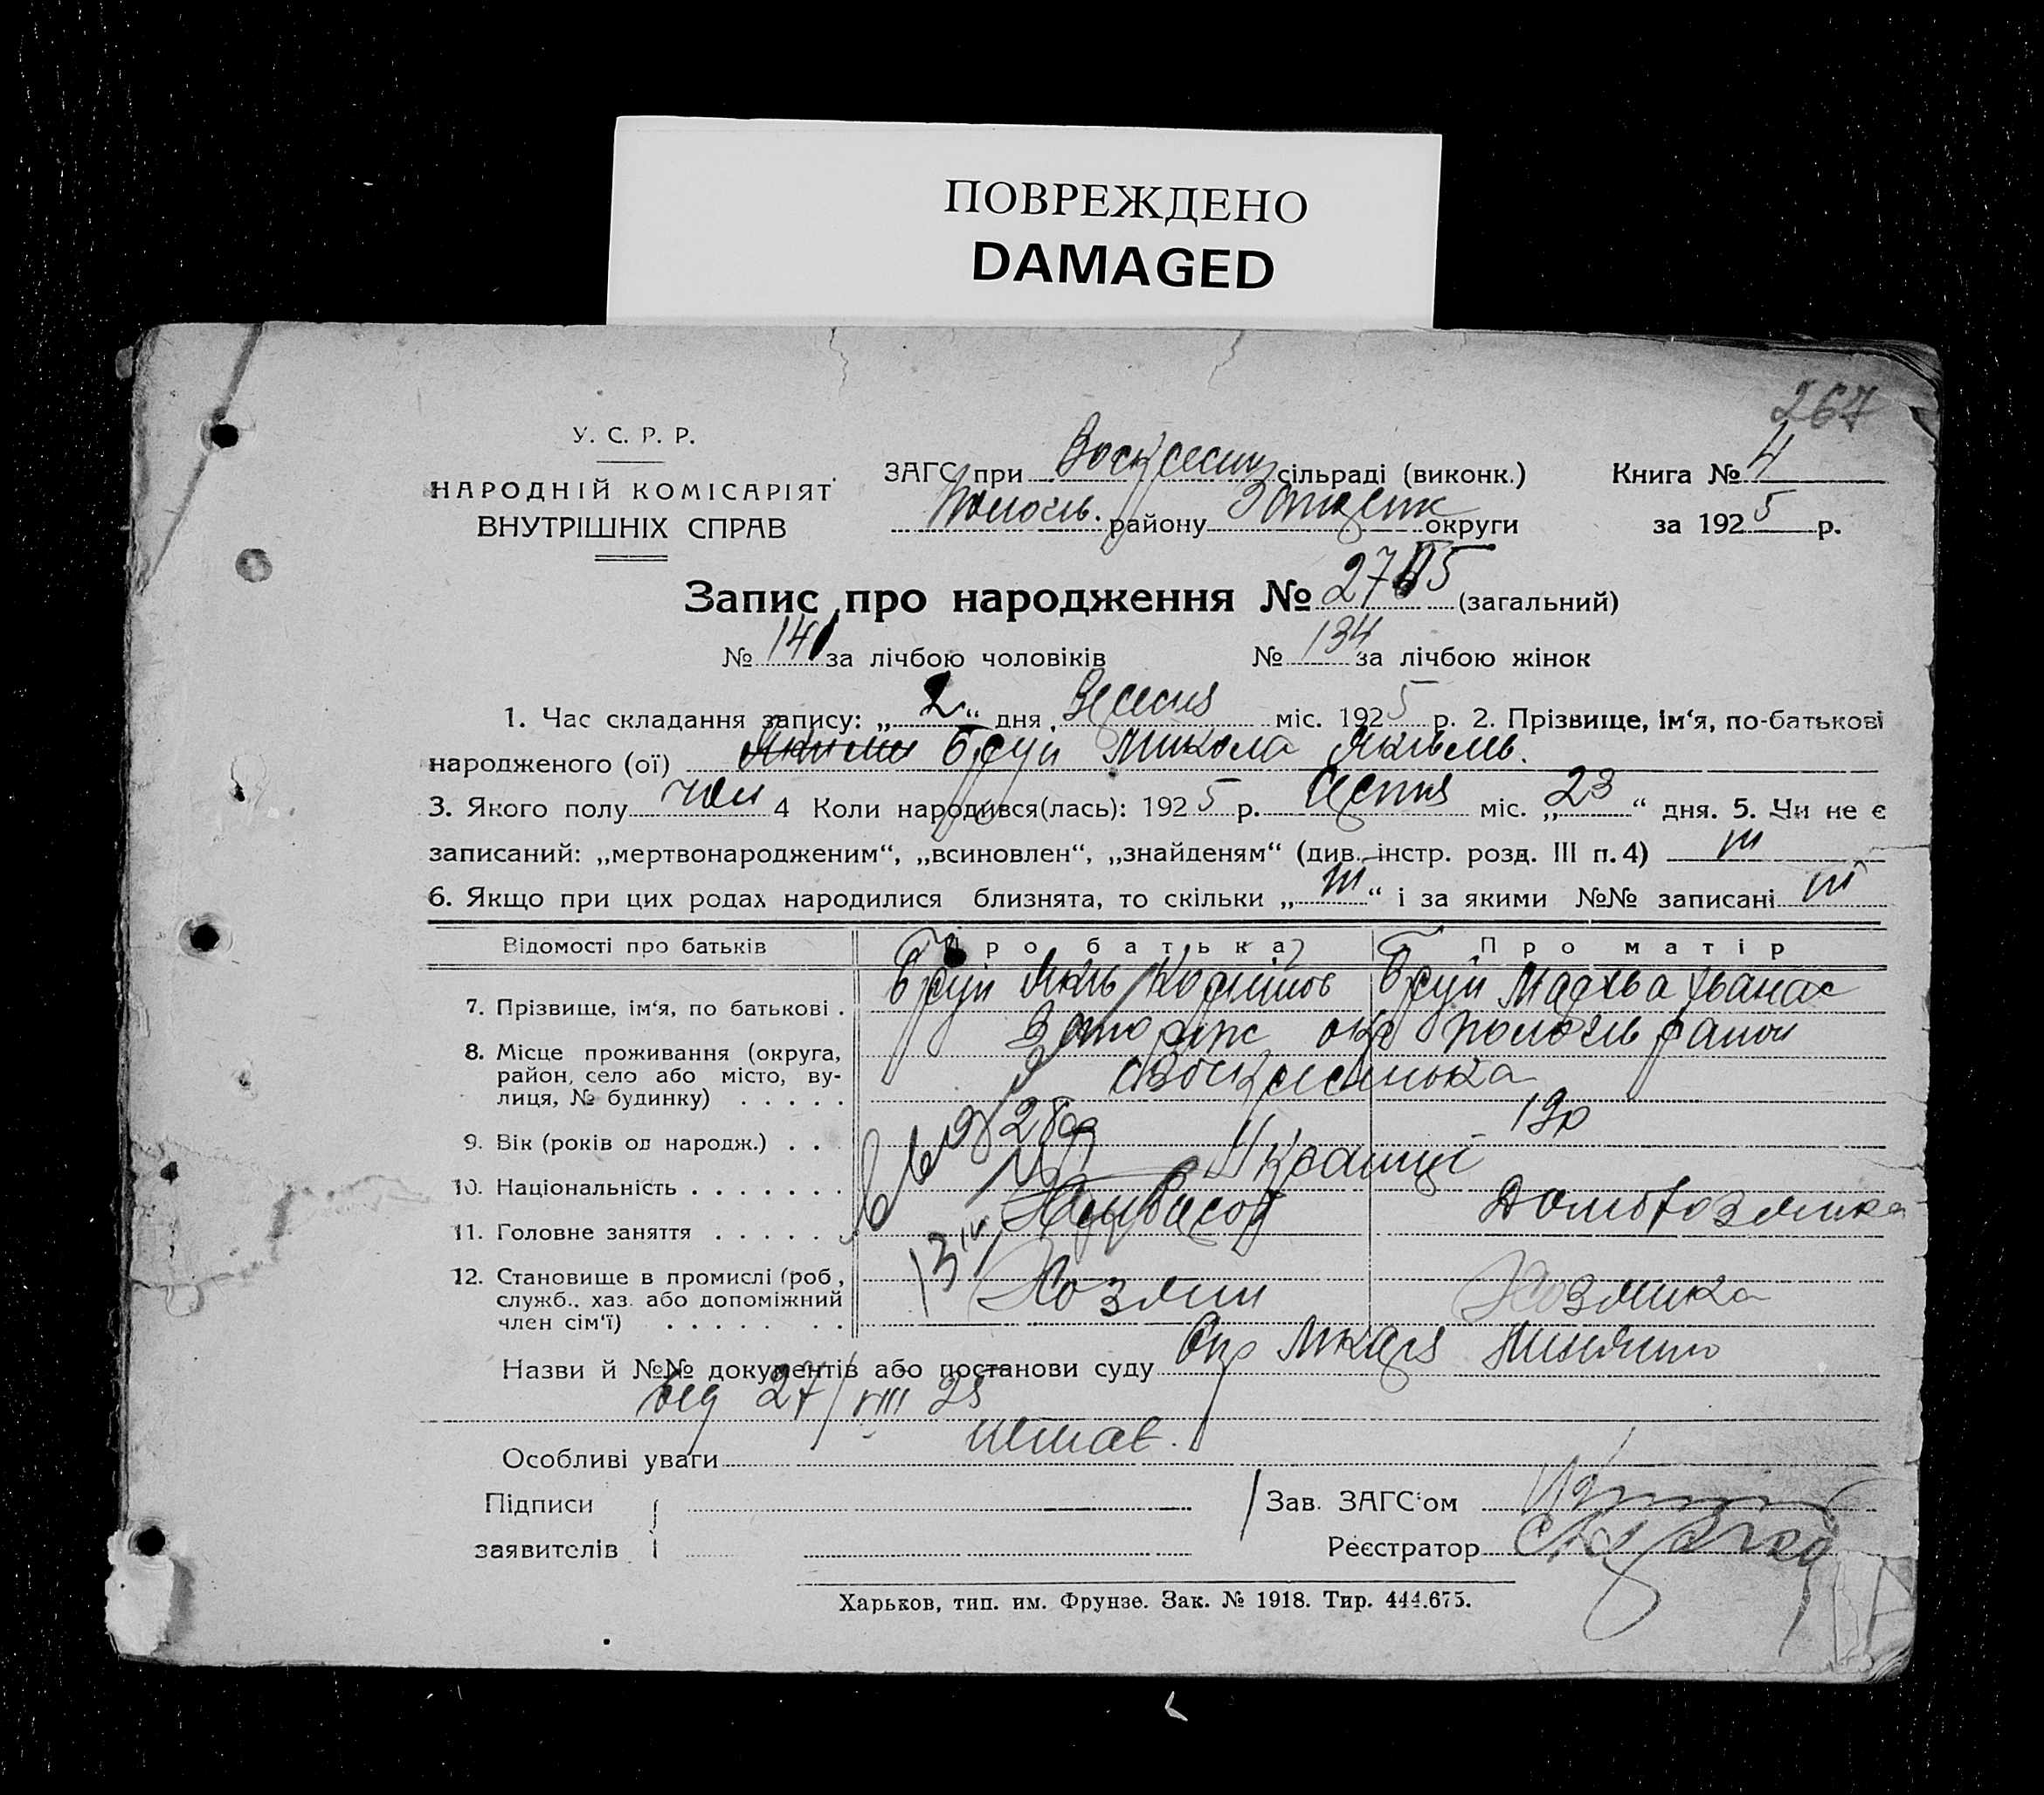 ПОВРЕЖДЕНО
DAMAGED
267
У. С. Р. Р.
НАРОДНІЙ КОМІСАРІЯТ
ВНУТРІШНІХ СПРАВ
ЗАГС при сільраді (виконк.)
району округи
Книга № 4
за 1925 р.
Запис про народження № (загальний)
№ 141 за лічбою чоловіків № 134 за лічбою жінок
1. Час складання запису: „2“ дня Вересня міс. 1925 р. 2. Прізвище, ім‘я, по-батькові
народженого (ої) Брун Микола Яковлев.
3. Якого полу чол 4 Коли народився(лась): 1925 р. Серпня міс. „23“ дня. 5. Чи не є
записаний: „мертвонародженим“, „всиновлен“, „знайденям“ (див. інстр. розд. III п. 4) ні
6. Якщо при цих родах народилися близнята, то скільки „ні“ і за якими №№ записані ні
Відомості про батьків Про батька Про матір
7. Прізвище, ім‘я, по батькові . Брун Яків Брун
8. Місце проживання (округа,
район, село або місто, ву-
лиця, № будинку) . . . . .
Запоріж окр Пологів район
с Воскресенька
9. Вік (років од народж.) . . 28 19р
10. Національність . . . . . . . Українці
11. Головне заняття . . . . . Домохозяика
12. Становище в промислі (роб.,
служб., хаз. або допоміжний
член сім‘ї) . . . . . . .
Хозяин Хозяика
Назви й №№ документів або постанови суду
від 27/VIII 25
Особливі уваги немає.
Підписи
заявителів
Зав. ЗАГС‘ом
Реєстратор
Харьков, тип. им. Фрунзе. Зак. № 1918. Тир. 444.675.